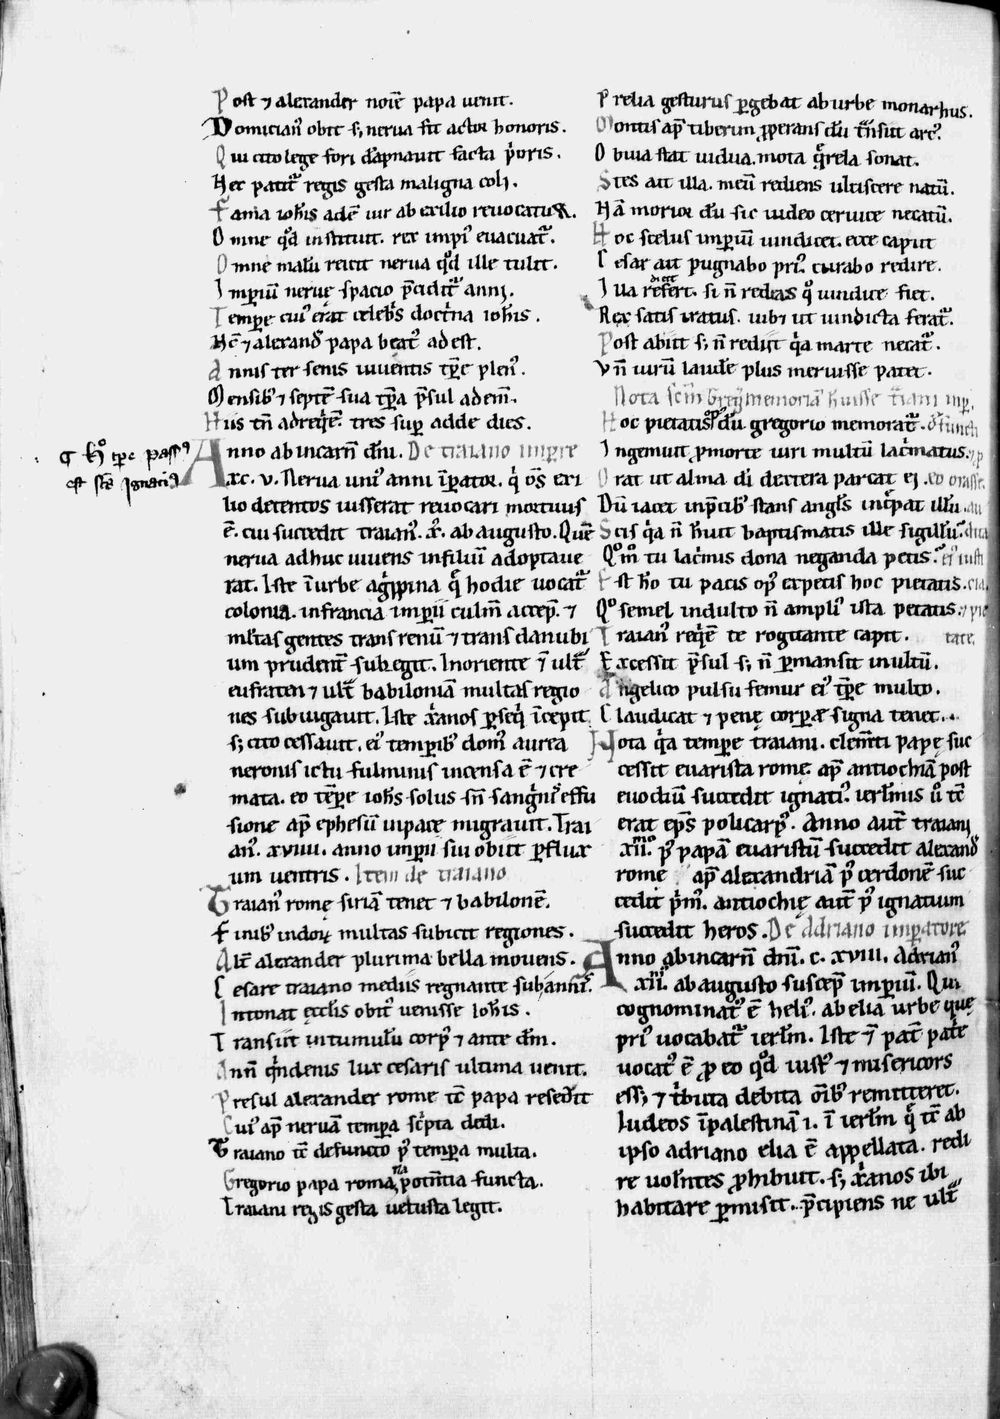 Post ⁊ alexander noīe papa uenit.
Domician᾽ obit s; nerua fit actor honoris.
Qui cito lege fori dāpnauit facta p̄oris.
Hec patit᷑ regis gesta maligna coli.
Fama ioh̄is adē iur ab exilio reuocatur.
Omne qd̄ instituit. rex impi᾽ euacuat᷑.
Omne malū reicit nerua qd̄ ille tulit.
Imperiū neruę spacio p̄cidit᷑ anni.
Tempore cui᾽ erat celebs̄ doct̄na ioh̄is.
Hc̄ ⁊ alexand̄ papa beat᾽ adest.
Annis ter senis uiuentis tp̄re plen᾽.
Mensib᾽ ⁊ septē sua tp̄ra p̄sul adem̄.
Hiis tn̄ adreq̄re. tres sup̄ adde dies.
¶ h᷒ tp̄re pass᾽
est sc̄s Ignaci᾽
Anno ab incarn̄ dn̄i. De traiano imp̄re
.xc. v. Nerua uni᾽ anni īp̄ator. q̄ os̄ exi
lio detentos iusserat reuocari mortuus
ē. cui succedit traian᾽. x᾽. ab augusto. Quē
nerua adhuc uiuens in filium adoptaue
rat. Iste ī urbe aḡppina q̄ hodie uocat᷑
colonia. in francia imperii culm̄ accep̄. ⁊
ml̄tas gentes trans renū ⁊ trans danubi
um prudent̄ subegit. In oriente ⁊̄ ult̄
eufraten ⁊ ult̄ babiloniā multas regio
nes subiugauit. Iste xānos p̄seq̄ īcepit
s; cito cessauit. ei᾽ temporib᾽ dom᾽ aurea
neronis ictu fulminis incensa ē ⁊ cre
mata. eo tēp̄e ioh̄s solus sn̄ sanguīs effu
sione ap̄ ephesū in pace migrauit. Trai
an᾽. xviiii. anno imperii sui obiit p̄flux
um uentris. Item de traiano
Traian᾽ romę siriā tenet ⁊ babilonē.
Finib᾽ indoꝝ multas subicit regiones.
Alt̄ alexander plurima bella mouens.
Cesare traiano medius regnante sub annis.
Intonat eccl̄is obit᾽ uenisse ioh̄is.
Transiit in tumulū corp᾽ ⁊ ante dm̄.
Ann̄ q̄ndenis lux cesaris ultima uenit.
Presul alexander rome tc̄ papa resedit
Cui᾽ ap̄ neruā tempora sc̄pta dedi.
Traiano tc̄ defuncto p᾽ tempora multa.
Gregorio papa romana potentia functa.
Traiani regis gesta uetusta legit.
Prelia gesturus p̄gebat ab urbe monarhus.
Montis ap̄ tiberim p̄perans dū t̄nsiit arc᾽.
Obuia stat uidua. mota q̄rela sonat.
Stes ait illa. meū rediens ulciscere natū.
Hā morior dū sic uideo ceruice necatū.
Hoc scelus imperiū uindicet. ecce caput
Cesar ait pugnabo pri᾽. curabo redire.
Illa refert. si n̄ redeas q᷒ uindice fiet.
Rex satis iratus. uibi ut uindicta ferat᷑.
Post abiit s; n̄ rediit q̄a marte necat᷑.
Vn̄ uirū laude plus meruisse patet.
Nota scm̄ Greg᷑ memoriā h̄uisse t̄iani imp̄.
Hoc pietatis op᾽ dū gregorio memorat᷑. d̄functi
Ingemuit p̄ morte uiri multū lac̄matus.
Orat ut alma di dextera parcat ei. eo orasse.
Dū iacet in p̄cib᾽ stans angl̄s inc̄pat illū.
Scis q̄a n̄ h̄uit baptismatis ille sigillū.
Qm̄ tu lac̄mis dona neganda petis.
Est h̄o tu pacis op᾽ expetis hoc pietatis.
Q᷒ semel indulto n̄ ampli᾽ ista petatis. tate.
Traian᾽ req̄ē te rogitante capit.
Excessit p̄sul s; n̄ p̄mansit inultū.
Angelico pulsu femur ei᾽ tp̄re multo.
Claudicat ⁊ penę corporæ signa tenet.
Nota q̄a tempore traiani. clem̄ti papę suc
cessit euarista rome. ap̄ antiochiā post
euodiū succedit ignati᾽. ierl̄mis u᷒ tc̄
erat ep̄s policarp᾽. Anno aut̄ traiani
xii. p᾽ papā euaristū succedit alexand̄
rome ap̄ alexandriā p᾽ cerdonē suc
cedit p̄m᾽. antiochię aut̄ p᾽ ignatium
succedit heros. De Adriano imp̄atore
Anno ab incarn̄ dn̄i. c. xviii. Adrian᾽
.xii. ab augusto suscep̄ imperiū. Qui
cognominat᾽ ē heli᾽. ab elia urbe quę
pri᾽ uocabat᷑ ierl̄m. Iste ⁊̄ pat̄ pat̄e
uocat᾽ ē p̄ eo qd̄ iust᾽ ⁊ misericors
ess; ⁊ t̄buta debita oīb᾽ remitteret.
Iudeos ī palestinā .i. ī ierl̄m q̄ tc̄ ab
ipso adriano elia ē appellata. redi
re uol̄ntes p̄hibuit. s; xānos ibi
habitare p̄misit. p̄cipiens ne ult̄